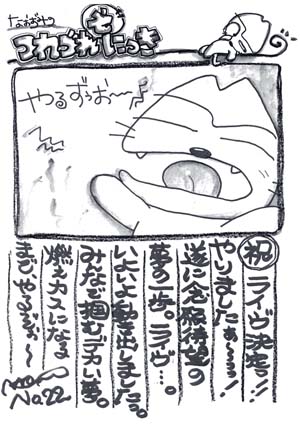 つれづれにっき
やるずぅお〜〜♪
祝 ライヴ決定っ!!
やりましたぁ〜っ!
遂に念願待望の
夢の一歩。ライヴ…。
いよいよ動き出しましたっ。
みなで掴むデカい夢。
燃えカスになる
まで、やるずぉ〜
No.22